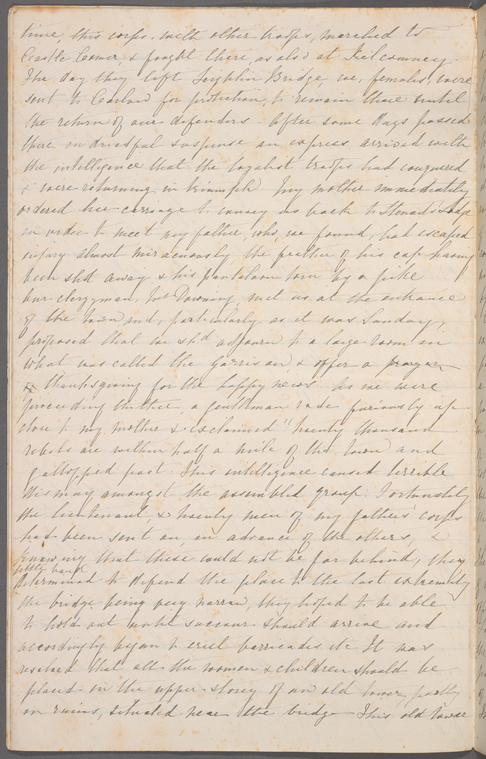 time, this corps, with other troops, marched to
Castle Comer, & fought there, as also at Kilcomney.
The day they left Leighlin Bridge, we, females, were
sent to Carlow for protection, to remain there until
the return of our defenders. After some days passed
there in dreadful suspense an express arrived with
the intelligence that the loyalist troops had conquered
& were returning in triumph. My mother immediately
ordered her carriage to convey us back to Steuart's Lodge
in order to meet my father, who, we found, had escaped
injury almost miraculously the feather of his cap having
been shot away & his pantaloon torn by a pike
Our clergyman, met us at the entrance
of the town and, particularly as it was Sunday,
proposed that we shd adjourn to a large room in
what was called the Garrison, & offer a prayer
of thanksgiving for the happy news. As we were
proceeding thither, a gentleman rode furiously up
close to my mother & exclaimed "twenty thousand
rebels are within half a mile of the town and
gallopped past. This intelligence caused terrible
dismay amongst the assembled group. Fortunately
the lieutenant, & twenty men of my father's corps
had been sent on in advance of the others, &
knowing that these could not be far behind, this
petty band
determined to defend the place to the last extremity
the bridge being very narrow, they hoped to be able
to hold out until succour should arrive and
accordingly began to erect barricades etc It was
resolved that all the women & children should be
placed in the upper storey of an old tower, partly
in ruins, situated near the bridge. This old tower